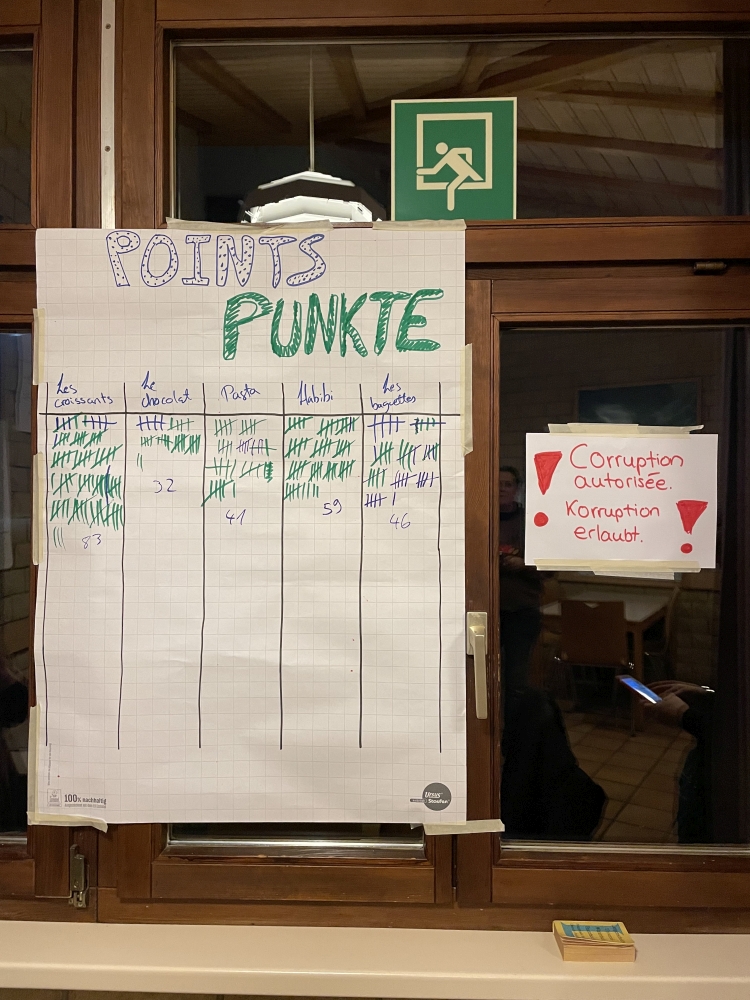 POINTS
PUNKTE
Les croissants
Le chocolat
Pasta
Habibi
Les baguettes
83
32
41
59
46
Corruption
autorisée.
Korruption
erlaubt.
100% nachhaltig
Ursus
Staufen